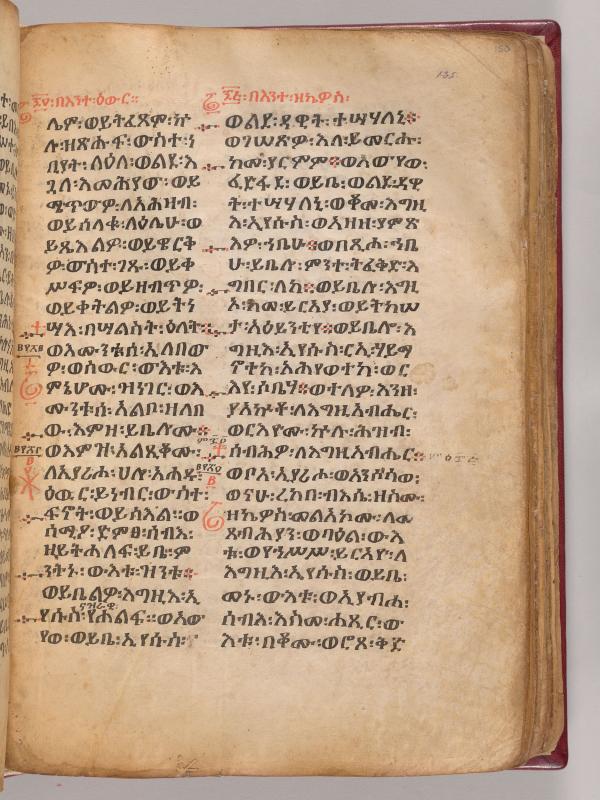 ፷፬፡በእንተ፡ዕውር።
ሌም፡ወይትፈጸም፡ኵ
ሉ፡ዘጽሑፍ፡ውስተ፡ነ
ቢያት፡ለዕለ፡ወልደ፡እ
ጓለ፡እመሕያው፡ወይ
ሜጥውዎ፡ለአሕዛብ፡
ወይሰላቁ፡ለዕሌሁ፡ወ
ይጼእልዎ፡ወይዌርቅ
ዎ፡ውስተ፡ገጹ፡ወይቀ
ሥፍዎ፡ወይዘብጥዎ፡
ወይቀትልዎ፡ወይትነ
ሣእ፡በሣልስት፡ዕለት።
ወእሙንቱሰ፡ኢለበው
ዎ፡ወስውር፡ውእቱ፡እ
ምኔሆሙ፡ዝነገር፡ወእ
ሙንቱሰ፡አልቦ፡ዘለበ
ው፡እምዝ፡ይቤሎሙ።
ወእምዝ፡አልጺቆሙ፡
ለኢያሪሖ፡ሀሎ፡አሐዱ፡
ዕውር፡ይነብር፡ውስተ፡
ፍኖት፡ወይስእል፡።ወ
ሰሚዖ፡ድምፀ፡ሰብእ፡
ዘይትሐለፍ፡ይቤ፡ም
ንትኑ፡ውእቱ፡ዝንቱ።
ወይቤልዎ፡እግዚእ፡ኢ
ናዝራዊ
የሱስ፡የሐልፍ።ወአው
የወ፡ወይቤ፡ኢየሱስ፡
፷፭፡በእንተ፡ዘኬዎስ፡
ወልደ፡ዳዊት፡ተሣሃለኒ።
ወገሠጽዎ፡እለ፡ይመርሑ፡
ከመ፡ያርምም።ወአውየወ፡
ፈድፋደ፡ወይቤ፡ወልደ፡ዳዊ
ት፡ተሣሃለኒ፡ወቆመ፡እግዚ
እ፡ኢየሱስ፡ወአዘዘ፡ያምጽ
እዎ፡ኀቤሁ።ወበጺሖ፡ኀቤ
ሁ፡ይቤሎ፡ምንተ፡ትፈቅድ፡እ
ግበር፡ለከ።ወይቤሎ፡እግዚ
ኦ፡ከመ፡ይርአያ፡ወይትከሠ
ታ፡አዕይንቲየ።ወይቤሎ፡እ
ግዚእ፡ኢየሱስ፡ርኢ፡ሃይማ
ኖትከ፡አሕየወተከ፡ወር
እየ፡ሶቤሃ።ወተለዎ፡እንዘ፡
ያአኵቶ፡ለእግዚአብሔር፡
ወርእየሙ፡ኵሉ፡ሕዝብ፡
ሰብሕዎ፡ለእግዚአብሔር።
ወቦአ፡ኢያሪሖ፡ወአንሶሰወ፡
ወናሁ፡ረከበ፡ብእሴ፡ዘስሙ፡
ዘኬዎስ፡መልአኮሙ፡ለመ
ጸብሓያን፡ወባዕል፡ውእ
ቱ፡ወየኀሥሥ፡ይርአዮ፡ለ
እግዚእ፡ኢየሱስ፡ወይቤ፡
መኑ፡ውእቱ፡ወኢያብሖ፡
ሰብእ፡እስመ፡ሐጺር፡ው
እቱ፡በቆሙ፡ወሮጸ፡ቅድ